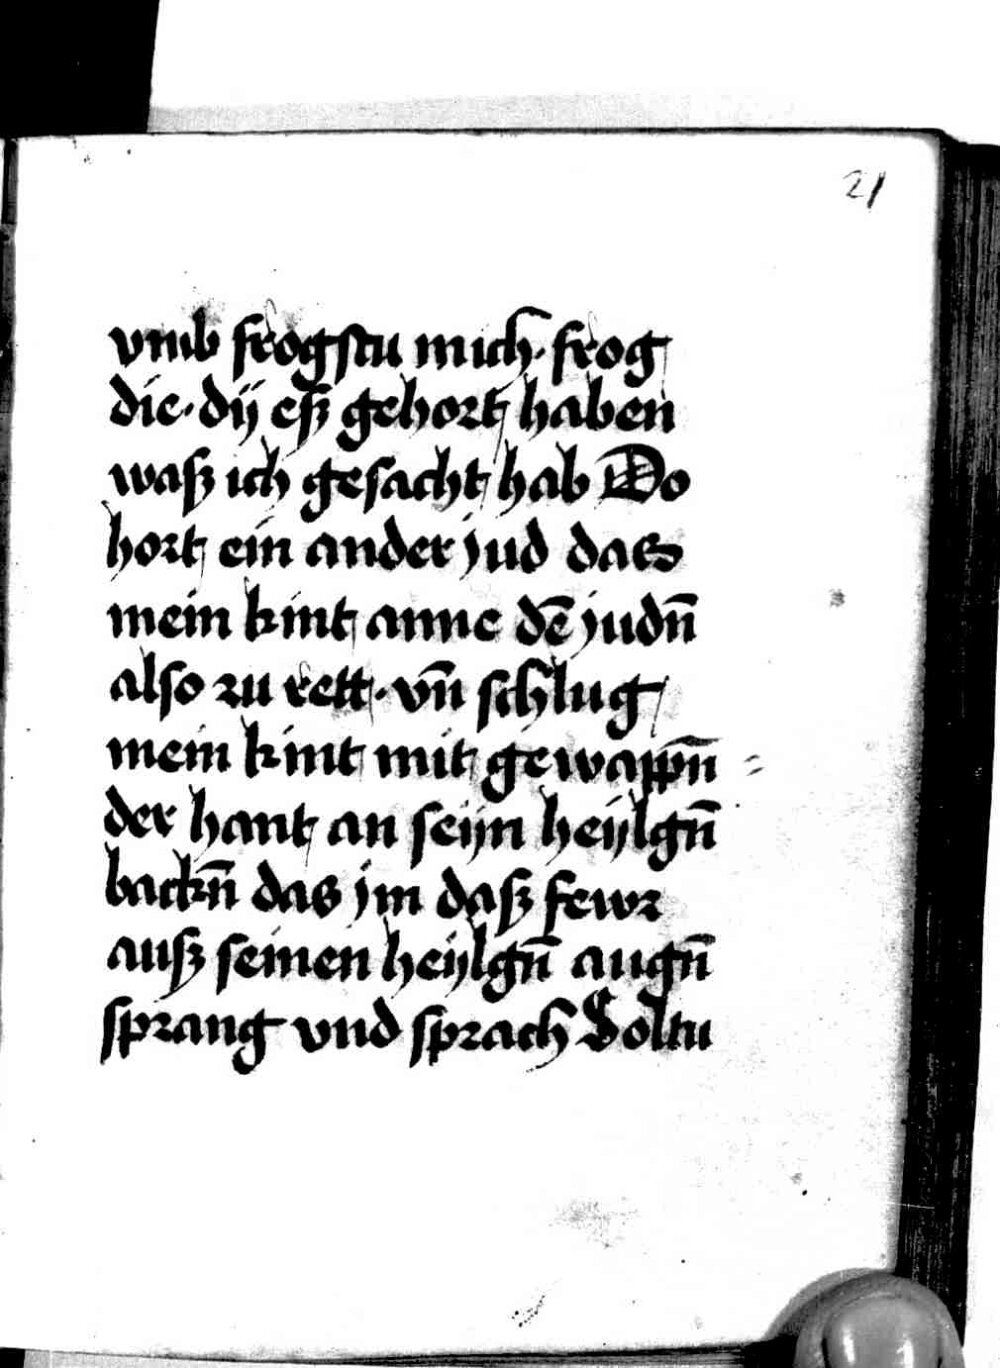 21
vmb frogstu mich · frog
die · dij eß gehort haben
waß ich gesacht hab Do
hort ein ander jud das
mein kint anne dē judn̄
also zu rett · vn̄ schlug
mein kint mit gewappn̄ =
der hant an seijn heijlgn̄
backn̄ das jm daß fewr
auß seinen heijlgn̄ augn̄
sprang vnd sprach Soltu